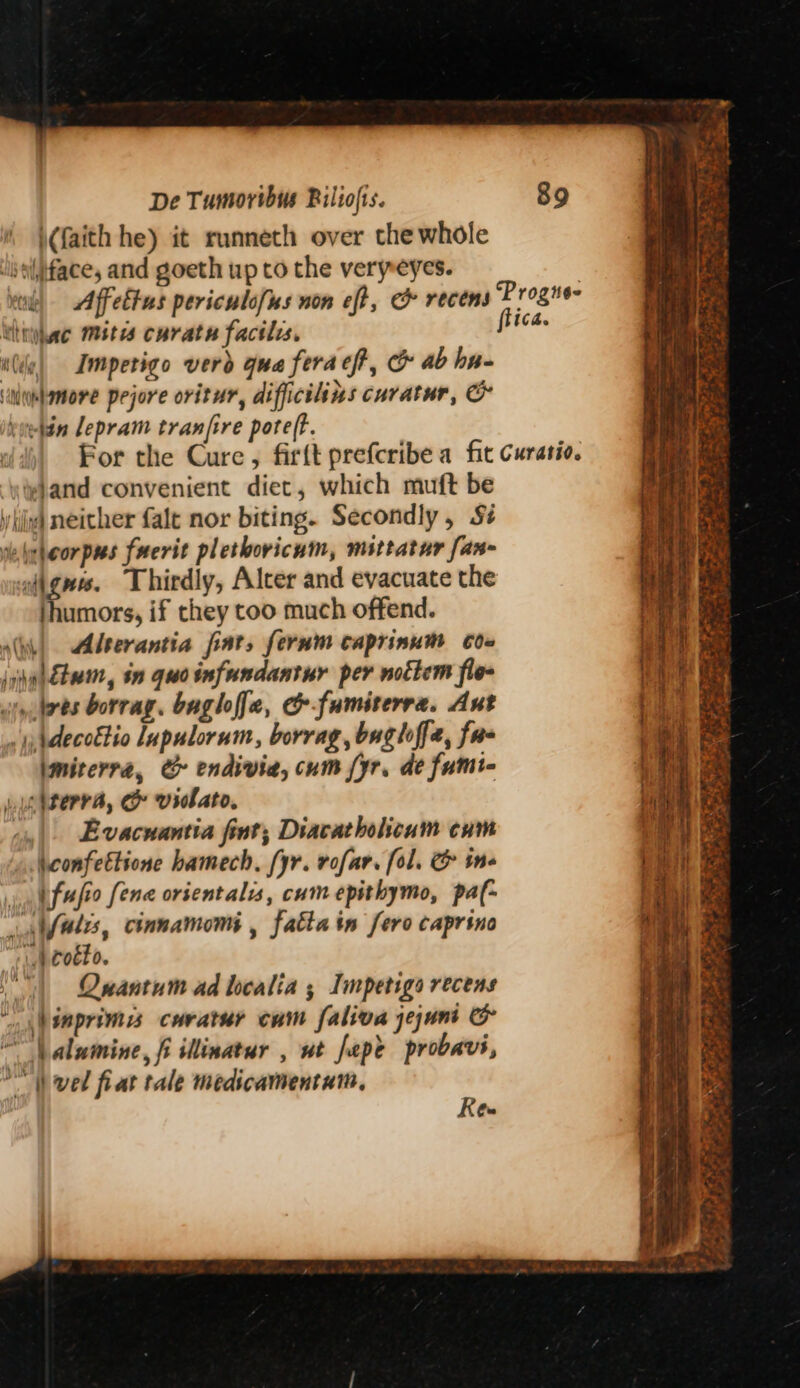 De Tumoribus Biliosis. 89
(saith he) it runneth over the whole
face, and goeth up to the very eyes.
Affectus periculosus non est, & recens Progno-
ac mitis curatu facilis. stica.
Impetigo verò qua fera est, & ab hu-
more pejore oritur, difficiliùs curatur, &
in lepram transire potest.
For the Cure, first prescribe a fit Curatio.
and convenient diet, which must be
neither salt nor biting. Secondly, Si
corpus fuerit plethoricum, mittatur san-
guis. Thirdly, Alter and evacuate the
humors, if they too much offend.
Alterantia sint, serum caprinum co-
ctum, in quo infundantur per noctem flo-
res borrag. buglossæ, & fumiterræ. Aut
decoctio lupulorum, borrag, buglossæ, fu-
miterræ, & endiviæ, cum syr. de fumi-
terra, & violato.
Evacuantia sint, Diacatholicum cum
confectione hamech. syr. rosar. sol. & in-
fusio senæ orientalis, cum epithymo, pas-
sulis, cinnamomi, facta in sero caprino
cocto.
Quantum ad localia; Impetigo recens
inprimis curatur cum saliva jejuni &
alumine, si illinatur, ut sæpè probavi,
vel fiat tale medicamentum.
Re-